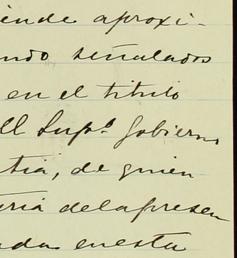 ende aproxi-
ndo señalados
en el titulo
ll Sup.º Gobierno
tia, de quien
tria dela presen
nda en esta